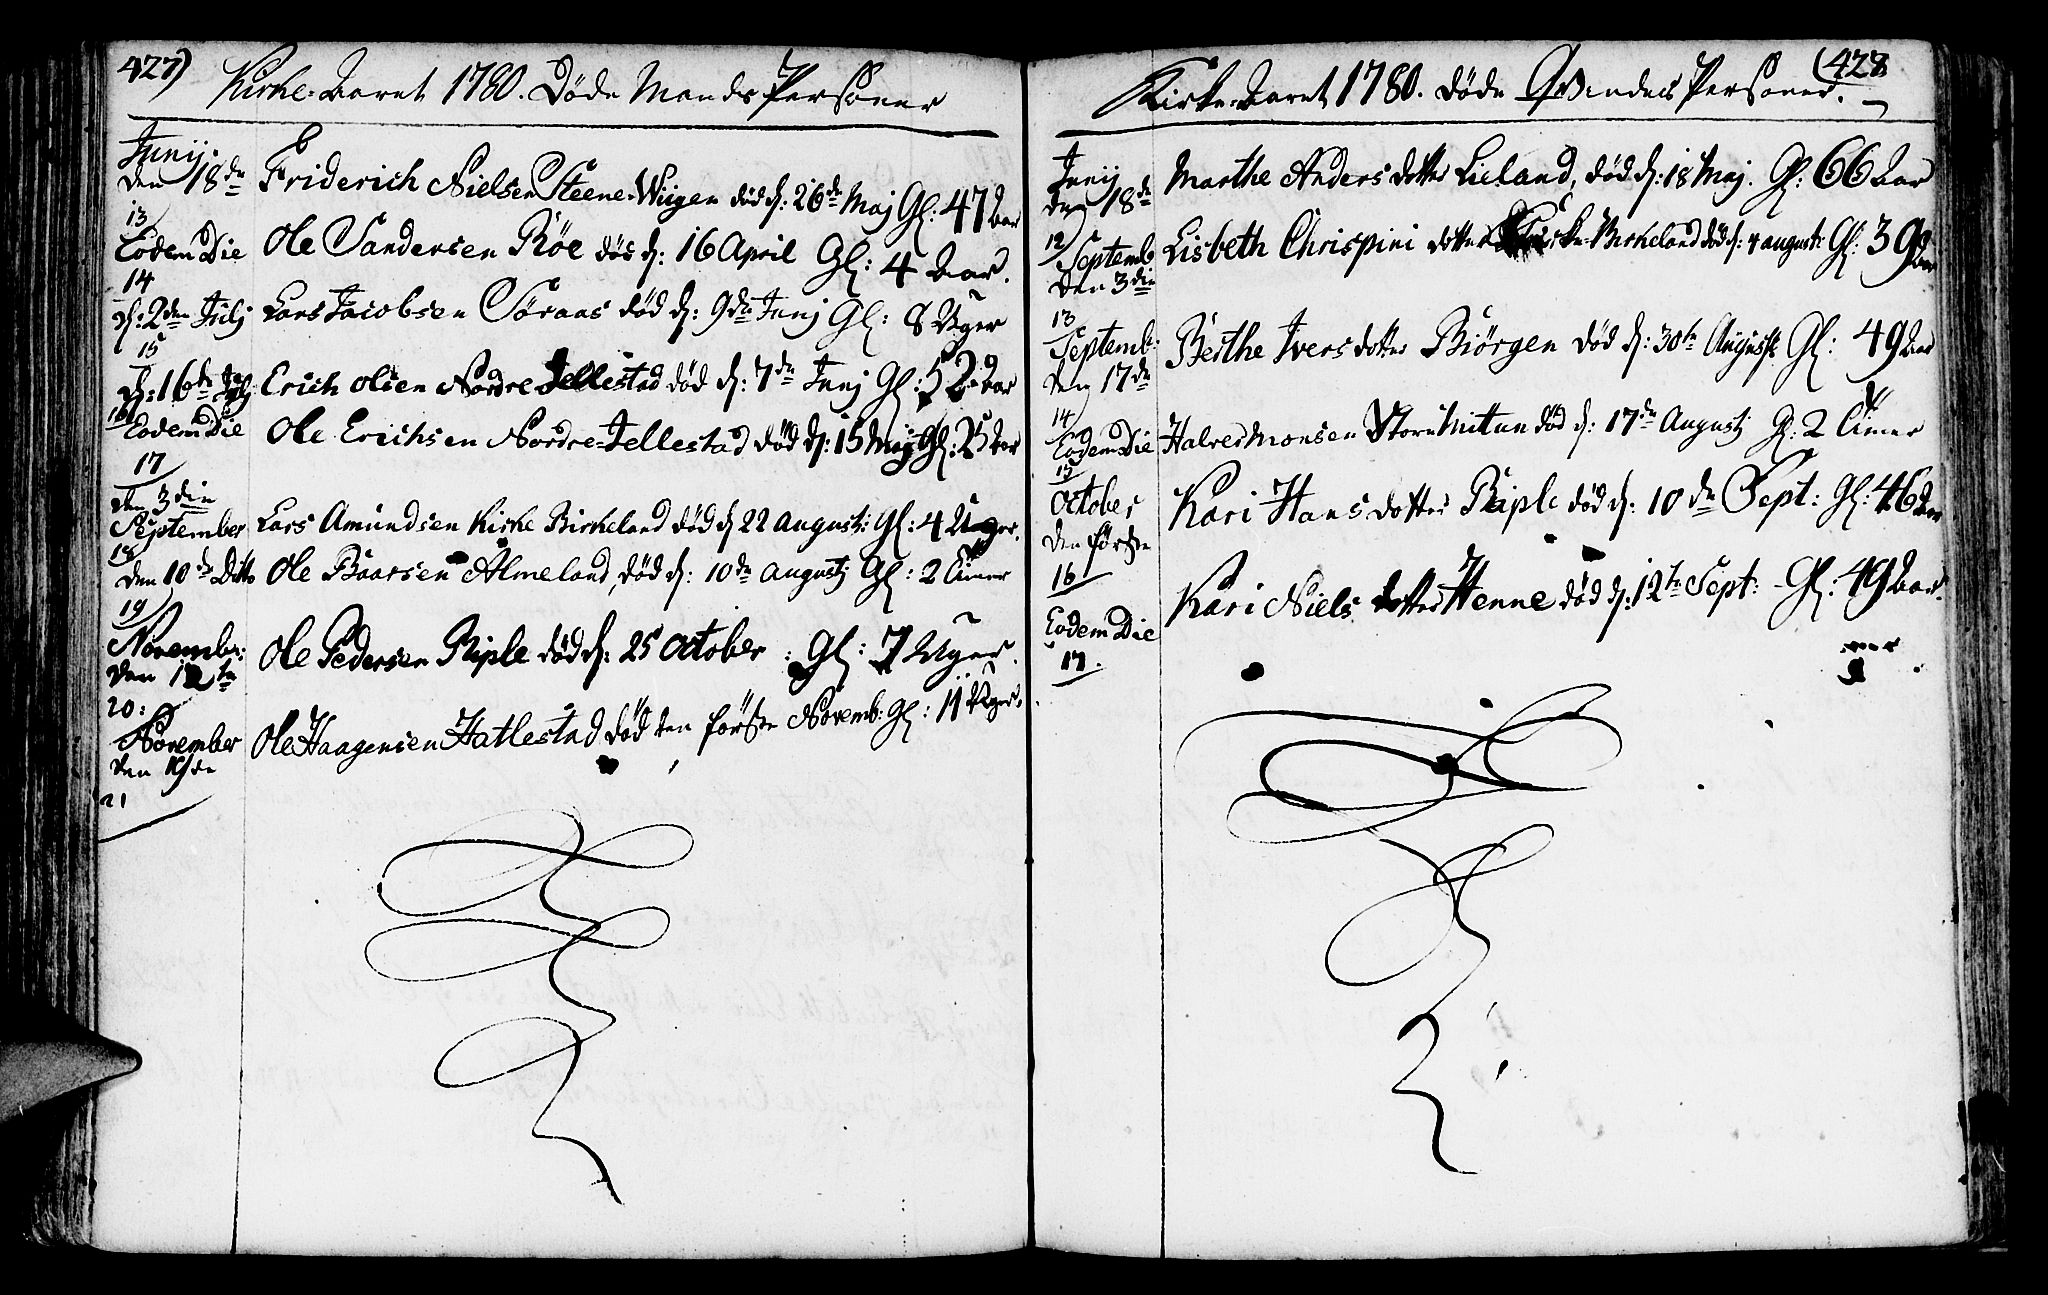 427)
Kirke-Aaret 1780. Døde Mands Personer
Junij
den 18de Friderich Nielsen Steene-Wiigen død d: 26de Maj Gl: 47 Aar
13
Eodem Die Ole Sandersen Röe døs d: 16 April Gl: 4 Aar.
14
d: 2den Julj Lars Jacobsen Söraas død d: 9de Junj Gl: 8 Uger
15
d: 16de Julj Erich Olsen Nordre Jellestad død d: 7de Junj Gl: 52 Aar
16
Eodem Die Ole Erichsen Nordre-Jellestad død d: 15 Maij Gl: 25 Aar
17
den 3die
September Lars Amundsen Kirke Birkeland død d 22 Augusti Gl: 4 Uger.
18
den 10de Ditto Ole Baarsen Almeland, død d: 10de Augustj Gl: 2 Timer
19
Novembr:
den 12te Ole Pedersen Riple død d: 25 October Gl: 7 Uger.
20:
November
den 19de Ole Haagensen Hatlestad død den förste Novemb: Gl: 11 Uger.
21
(428
Kirke-Aaret 1780. Døde Qvindes Personer.
Junij
den 18de Marthe Anders dotter Lieland, død d: 18 Maj. Gl: 66 Aar
12
Septemb
den 3die Lisbeth Chrispini dotter Kirke-Birkeland død d: 4 augusti Gl: 39 Aar
13
Septemb:
den 17de Berthe Ivers dotter Biörgen død d: 30te Augusti Gl: 49 Aar
14
Eodem Die Halver Monsen Store Mittun død d: 17de Augustj Gl: 2 Timer
15
October
den förste Kari Hans dotter Riple død d: 10de Sept: Gl: 46 Aar
16
Eodem Die Kari Niels dotter Henne død d: 12te Sept: Gl: 49 Aar.
17.